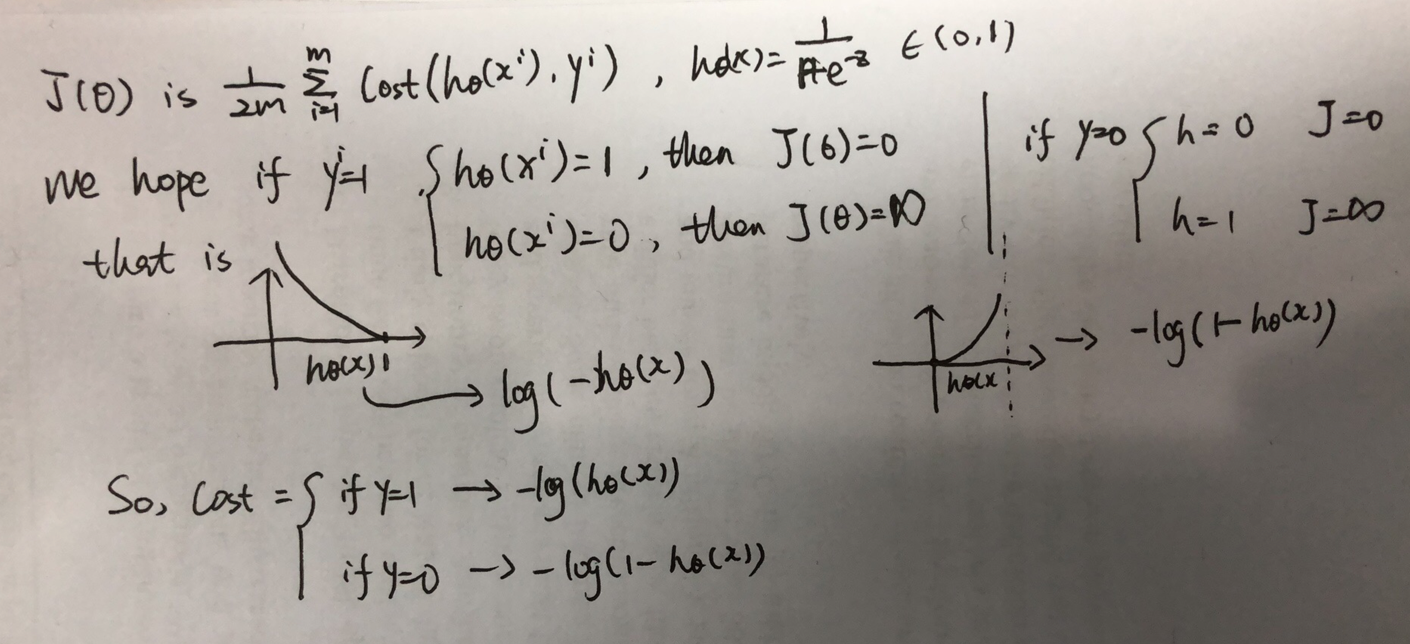 J(θ) is 1/2m Σ_{i=1}^{m} Cost(hθ(xⁱ), yⁱ) , hθ(x) = 1/(1+e^{-z}) ∈ (0,1)
we hope if yⁱ=1 { hθ(xⁱ)=1 , then J(θ)=0
hθ(xⁱ)=0 , then J(θ)=∞
if y=0 { h=0 J=0
h=1 J=∞
that is
hθ(x) 1
→ log(-hθ(x))
hθ(x
→ -log(1-hθ(x))
So, Cost = { if y=1 → -log(hθ(x))
if y=0 → -log(1-hθ(x))